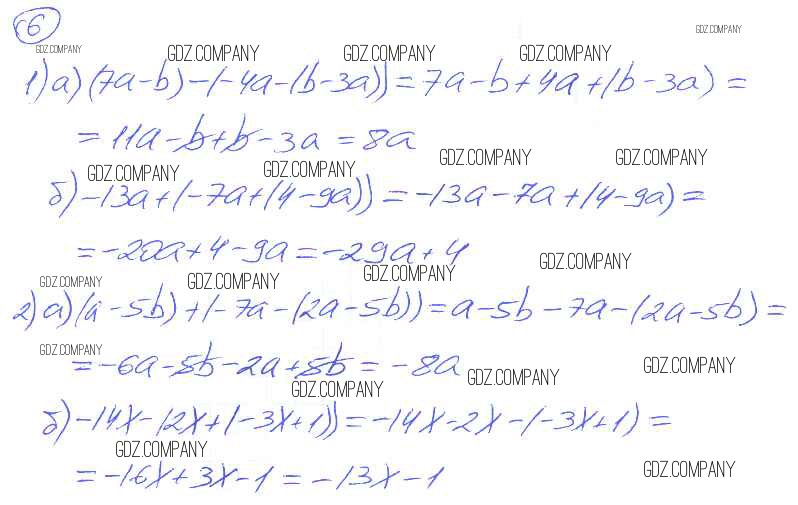 6
GDZ.COMPANY
GDZ.COMPANY GDZ.COMPANY GDZ.COMPANY GDZ.COMPANY
1) а) (7a-b)-(-4a-(b-3a))=7a-b+4a+(b-3a)=
=11a-b+b-3a=8a
GDZ.COMPANY GDZ.COMPANY GDZ.COMPANY GDZ.COMPANY
б) -13a+(-7a+(4-9a))=-13a-7a+(4-9a)=
=-20a+4-9a=-29a+4
GDZ.COMPANY GDZ.COMPANY GDZ.COMPANY GDZ.COMPANY
2) а) (a-5b)+(-7a-(2a-5b))=a-5b-7a-(2a-5b)=
=-6a-5b-2a+5b=-8a
GDZ.COMPANY GDZ.COMPANY GDZ.COMPANY GDZ.COMPANY
б) -14x-(2x+(-3x+1))=-14x-2x-(-3x+1)=
GDZ.COMPANY
=-16x+3x-1=-13x-1
GDZ.COMPANY